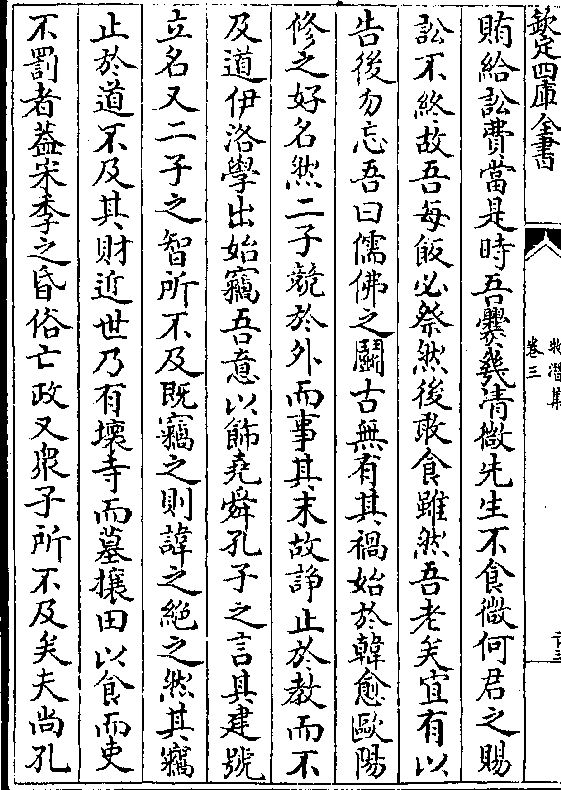 欽定四庫全書
牧潛集
卷三
賄給訟費當是時吾爨幾清微先生不食微何君之賜
訟不終故吾每飯必祭然後敢食雖然吾老矣宜有以
告後勿忘吾曰儒佛之鬭古無有其禍始於韓愈歐陽
修之好名然二子競於外而事其末故諍止於教而不
及道伊洛學出始竊吾意以飾堯舜孔子之言具建號
立名又二子之智所不及既竊之則諱之絶之然其竊
止於道不及其財近世乃有壊寺而墓攘田以食而吏
不罰者蓋宋季之昏俗亡政又衆子所不及矣夫尚孔